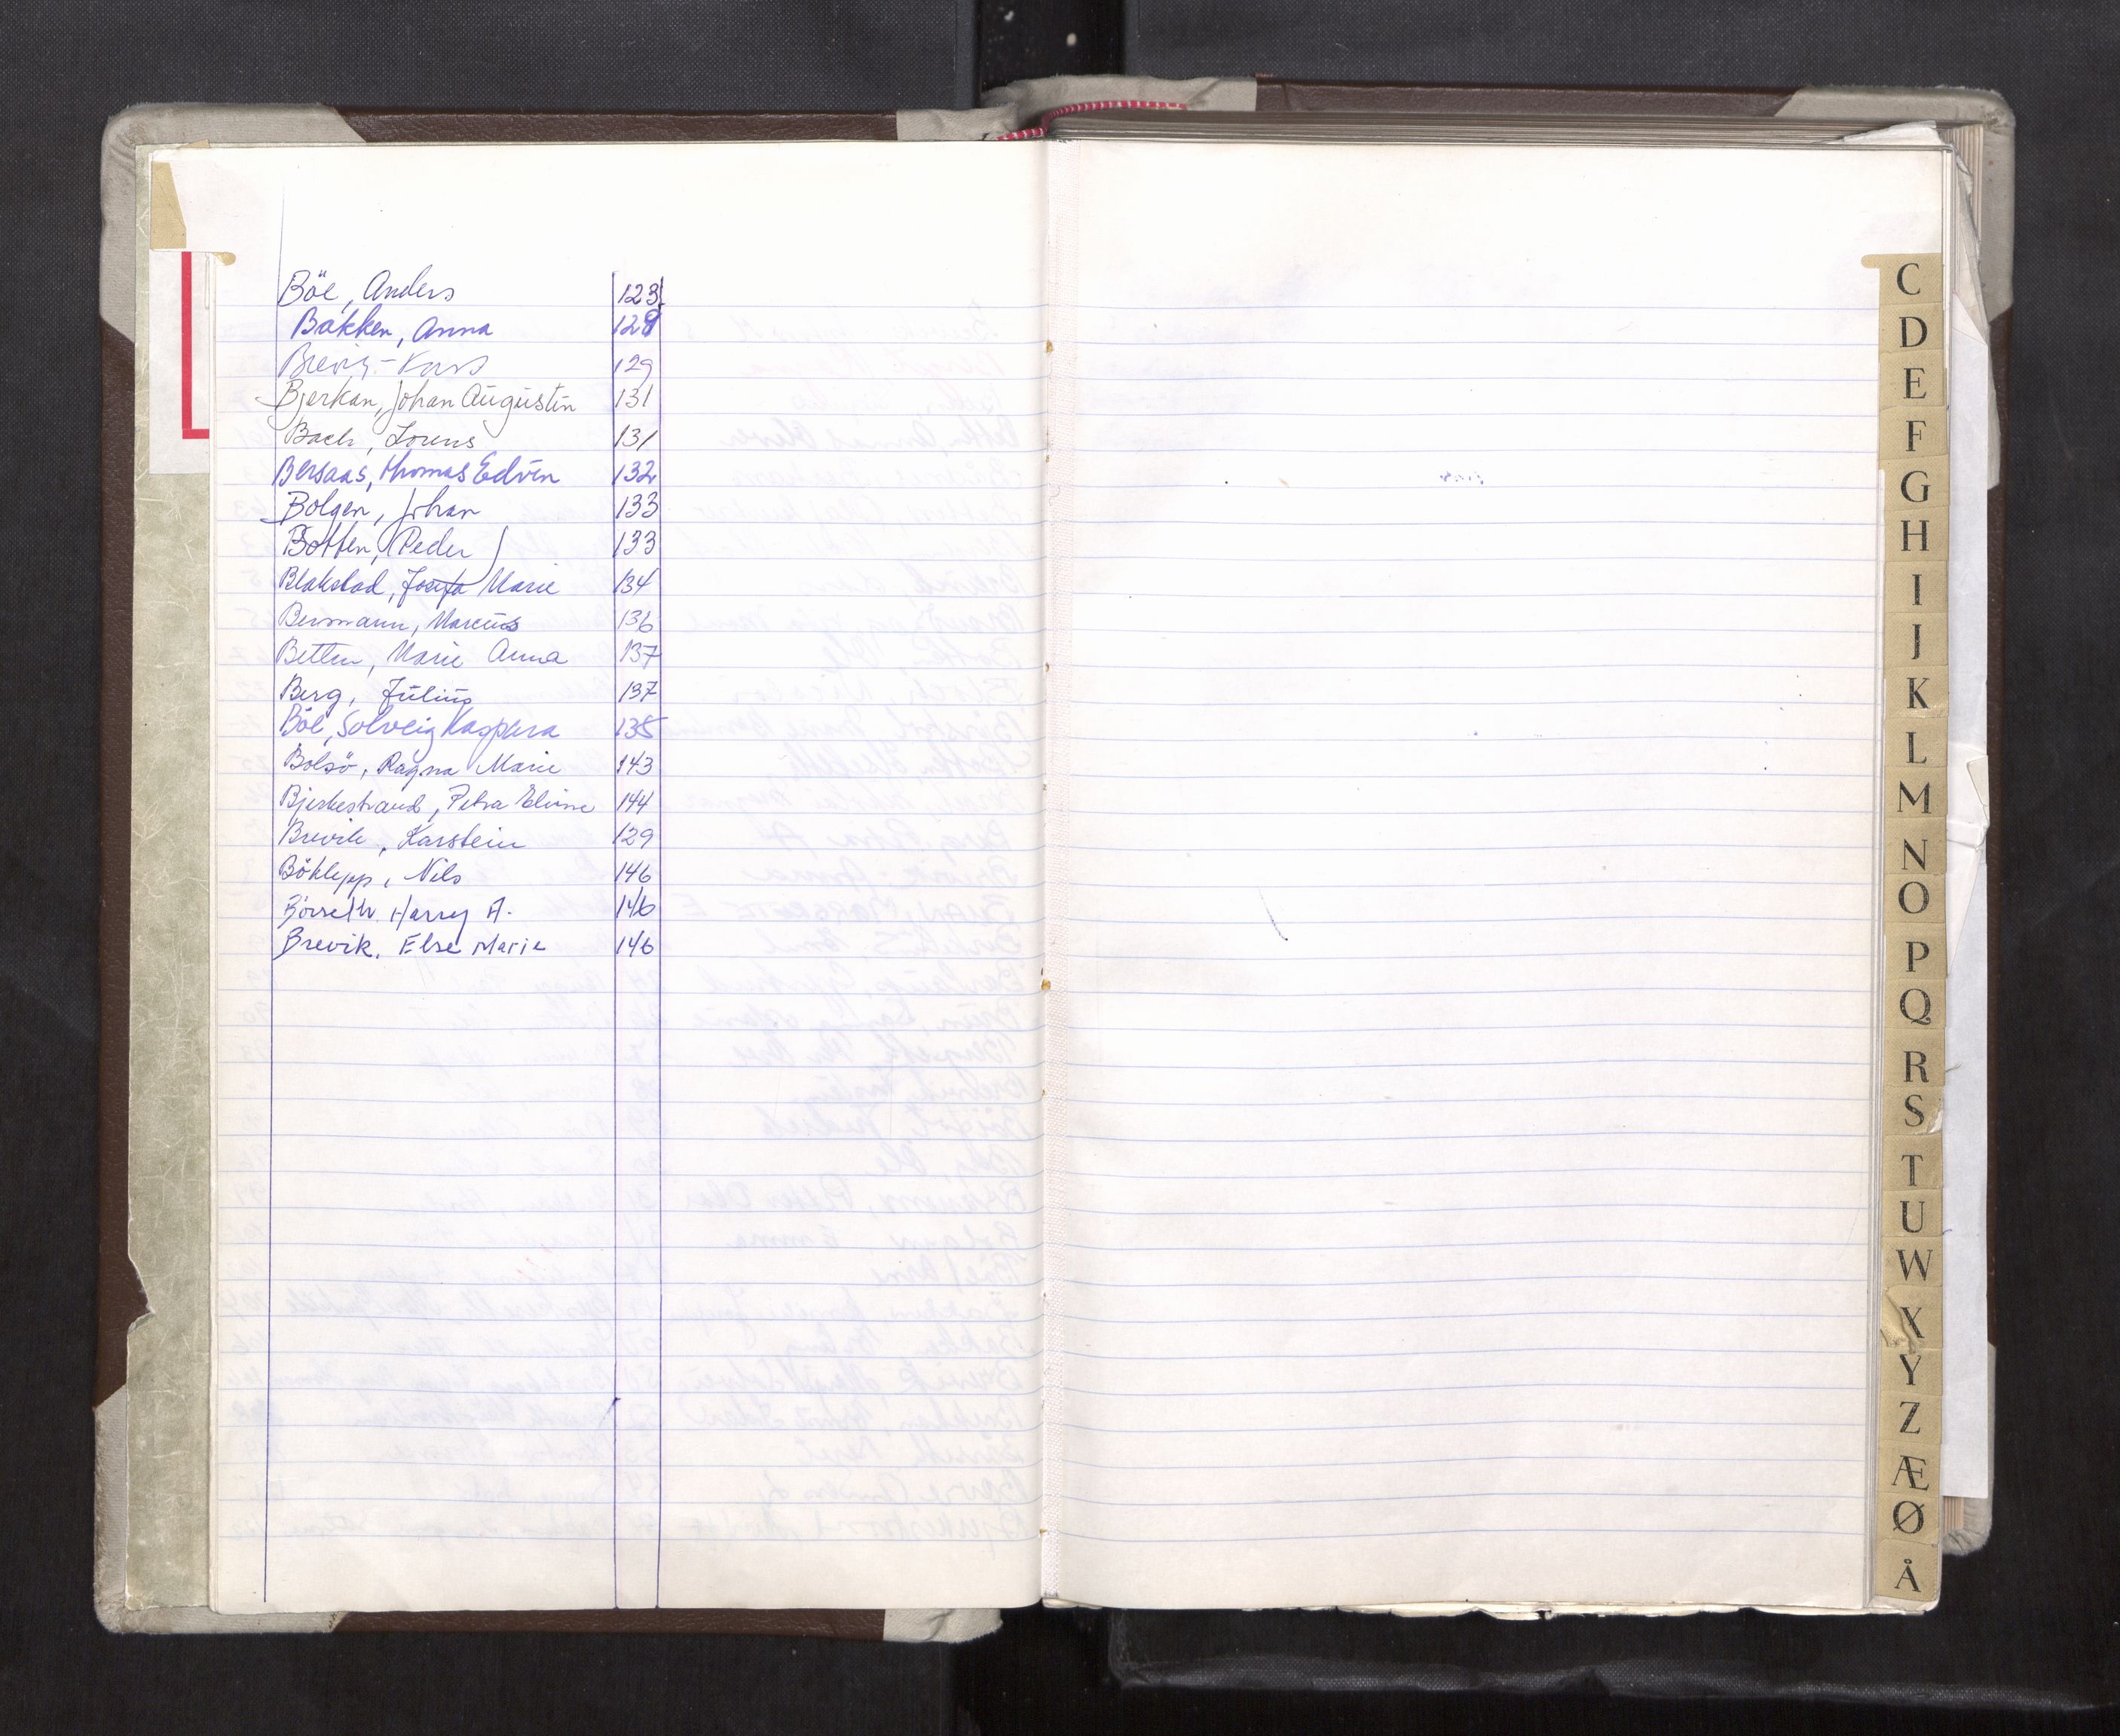 Böe, Anders 123
Bakken, Anna 129
Brevik - Kars 129
Bjerkan, Johan Augustin 131
Bach, Lorens 131
Bersaas, Thomas Edvin 132
Bolgen, Johan 133
Botten, Peder 133
Blakstad, Josefa Marie 134
Bermann, Marcus 136
Betten, Marie Anna 137
Berg, Julius 137
Böe, Solveig Kaspara 138
Bolsö, Ragna Marie 143
Bjerkestrand, Petra Elvine 144
Brevik, Karstein 129
Böklepp, Nils 146
Börseth Harry A. 146
Brevik, Else Marie 146
C
D
E
F
G
H
I
J
K
L
M
N
O
P
Q
R
S
T
U
W
X
Y
Z
Æ
Ø
Å